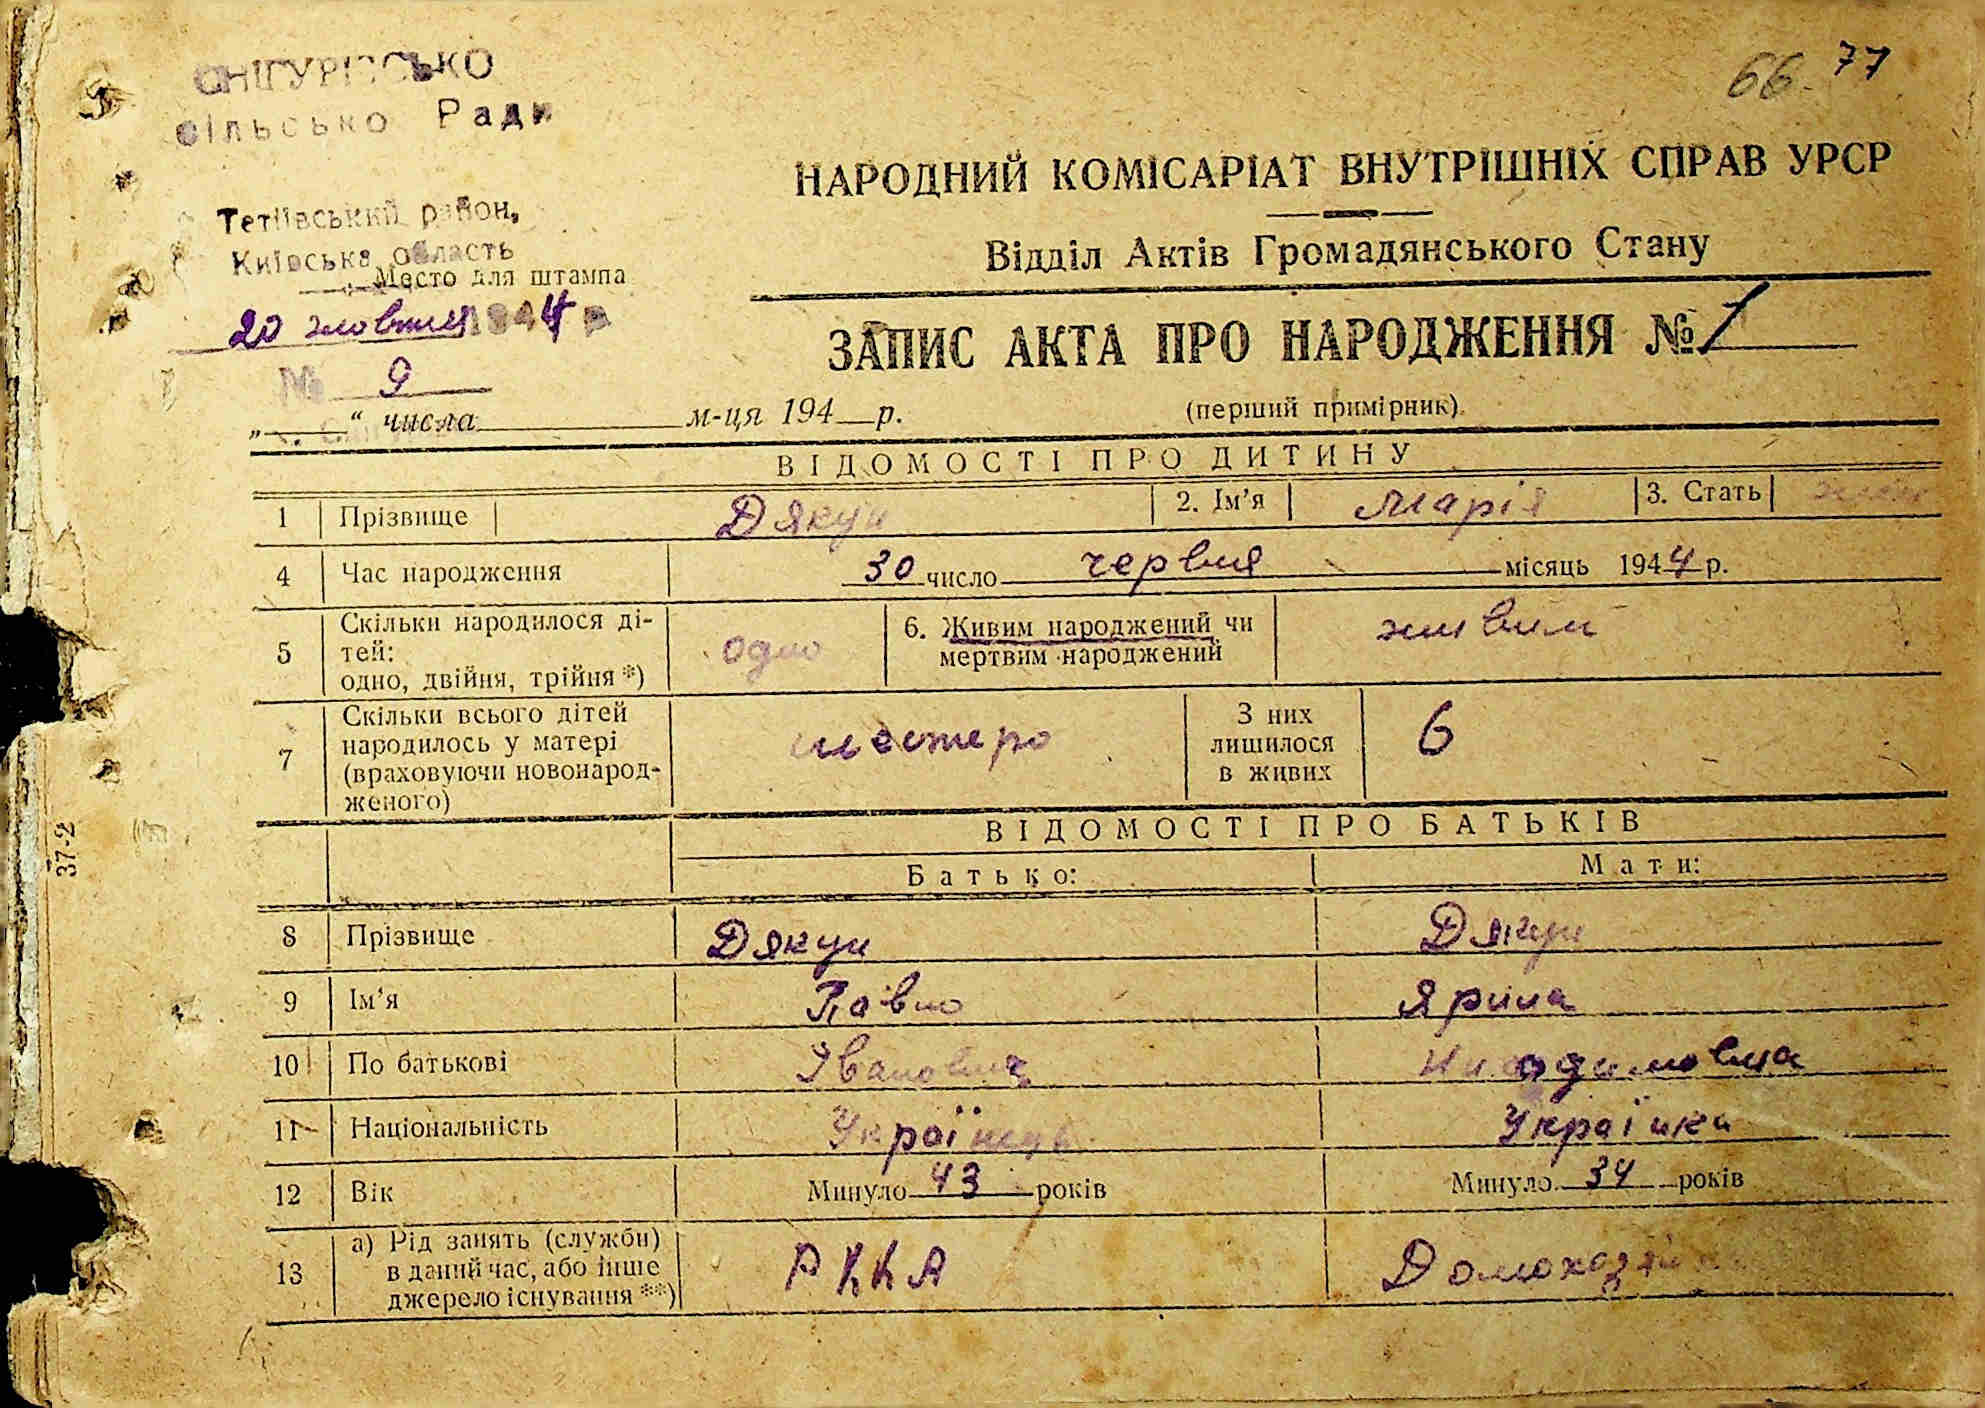 66. 77
СНІГУРІВСЬКО
сільсько Ради
Тетіївський район,
Київська область
Место для штампа
20 жовтня 1944 р
№ 9
„ “ числа м-ця 194 р.
НАРОДНИЙ КОМІСАРІАТ ВНУТРІШНІХ СПРАВ УРСР
Відділ Актів Громадянського Стану
ЗАПИС АКТА ПРО НАРОДЖЕННЯ № 1
(перший примірник)
ВІДОМОСТІ ПРО ДИТИНУ
1 Прізвище Дякун 2. Ім’я Марія 3. Стать
4 Час народження 30 число червня місяць 1944 р.
5 Скільки народилося ді-
тей:
одно, двійня, трійня *) одно
6. Живим народжений чи
мертвим народжений живим
7 Скільки всього дітей
народилось у матері
(враховуючи новонарод-
женого) шестеро
З них
лишилося
в живих 6
ВІДОМОСТІ ПРО БАТЬКІВ
Батько: Мати:
8 Прізвище Дякун Дякун
9 Ім’я Павло Ярина
10 По батькові Іванович Никодимовна
11 Національність Українець Українка
12 Вік Минуло 43 років Минуло 34 років
13 а) Рід занять (служби)
в даний час, або інше
джерело існування **) РККА
37-2